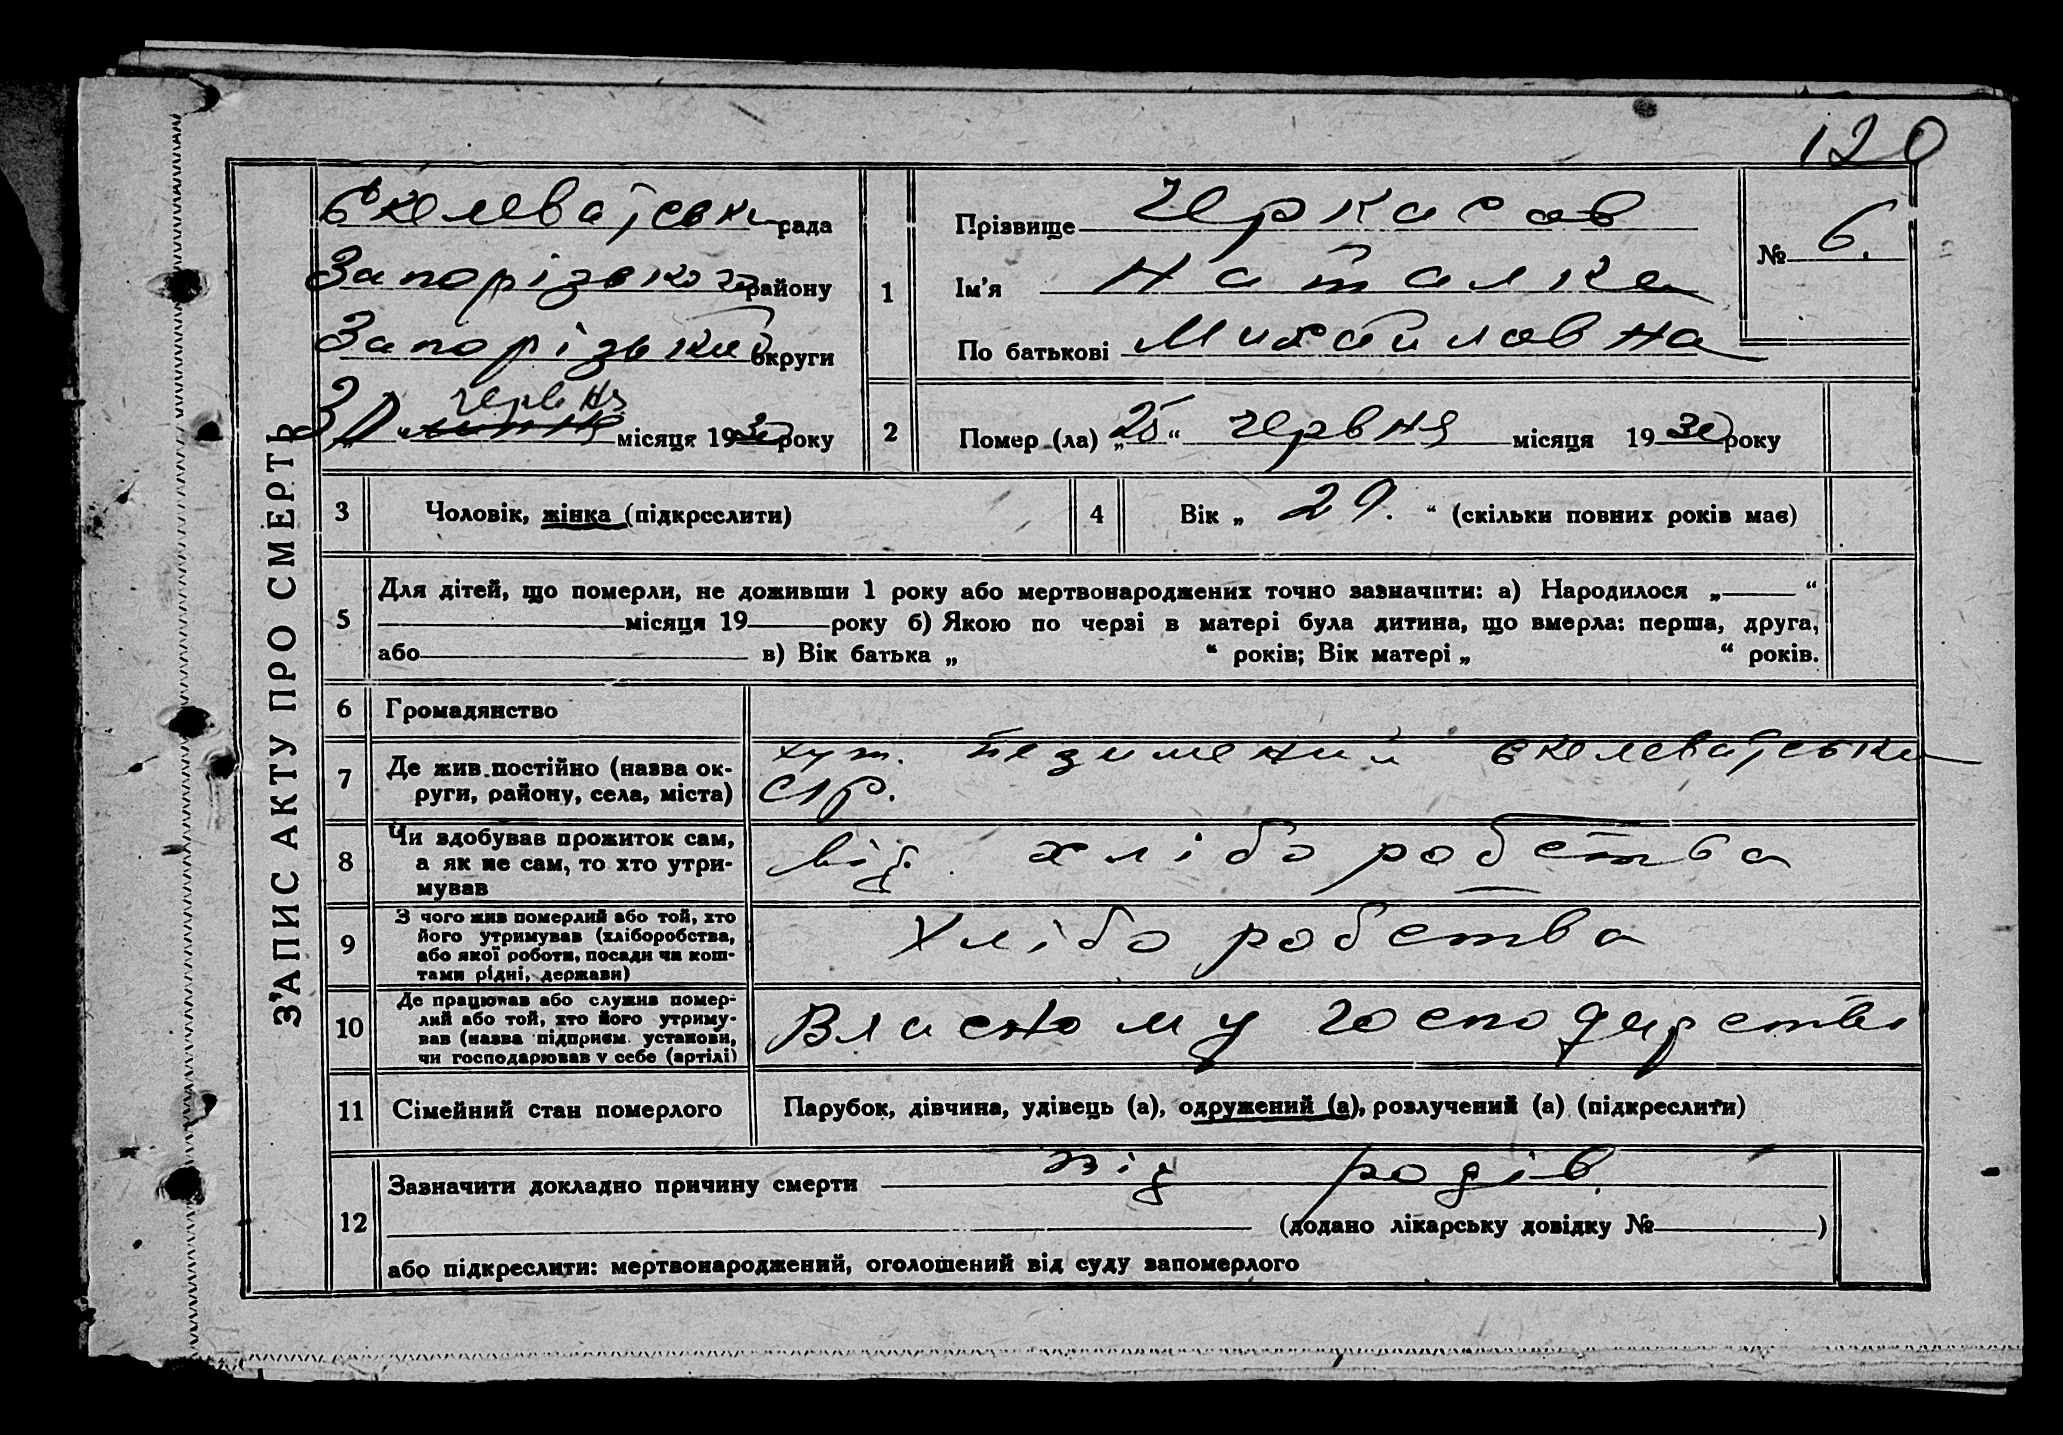 120
ЗАПИС АКТУ ПРО СМЕРТЬ
Єкелеваїська рада
Запорізького району
Запорізький округи
червня
30 липня місяця 1930 року
1
Прізвище Черкасов
Ім'я Наталка
По батькові Михайловна
№ 6.
2
Помер (ла) „25“ червня місяця 1930 року
3
Чоловік, жінка (підкреслити)
4
Вік „ 29. “ (скільки повних років має)
5
Для дітей, що померли, не доживши 1 року або мертвонароджених точно зазначити: а) Народилося „ “
місяця 19 року б) Якою по черзі в матері була дитина, що вмерла: перша, друга,
або в) Вік батька „ “ років; Вік матері „ “ років.
6
Громадянство
7
Де жив постійно (назва ок-
руги, району, села, міста)
хут. Безименний Єкелеваїськи
с/р.
8
Чи здобував прожиток сам,
а як не сам, то хто утри-
мував
від хліборобства
9
З чого жив померлий або той, хто
його утримував (хліборобства,
або якої роботи, посади чи кош-
тами рідні, держави)
Хліборобства
10
Де працював або служив помер-
лий або той, хто його утриму-
вав (назва підприєм. установи,
чи господарював у себе (артілі)
Власному господарстві
11
Сімейний стан померлого
Парубок, дівчина, удівець (а), одружений (а), розлучений (а) (підкреслити)
12
Зазначити докладно причину смерти від родів.
(додано лікарську довідку № )
або підкреслити: мертвонароджений, оголошений від суду запомерлого